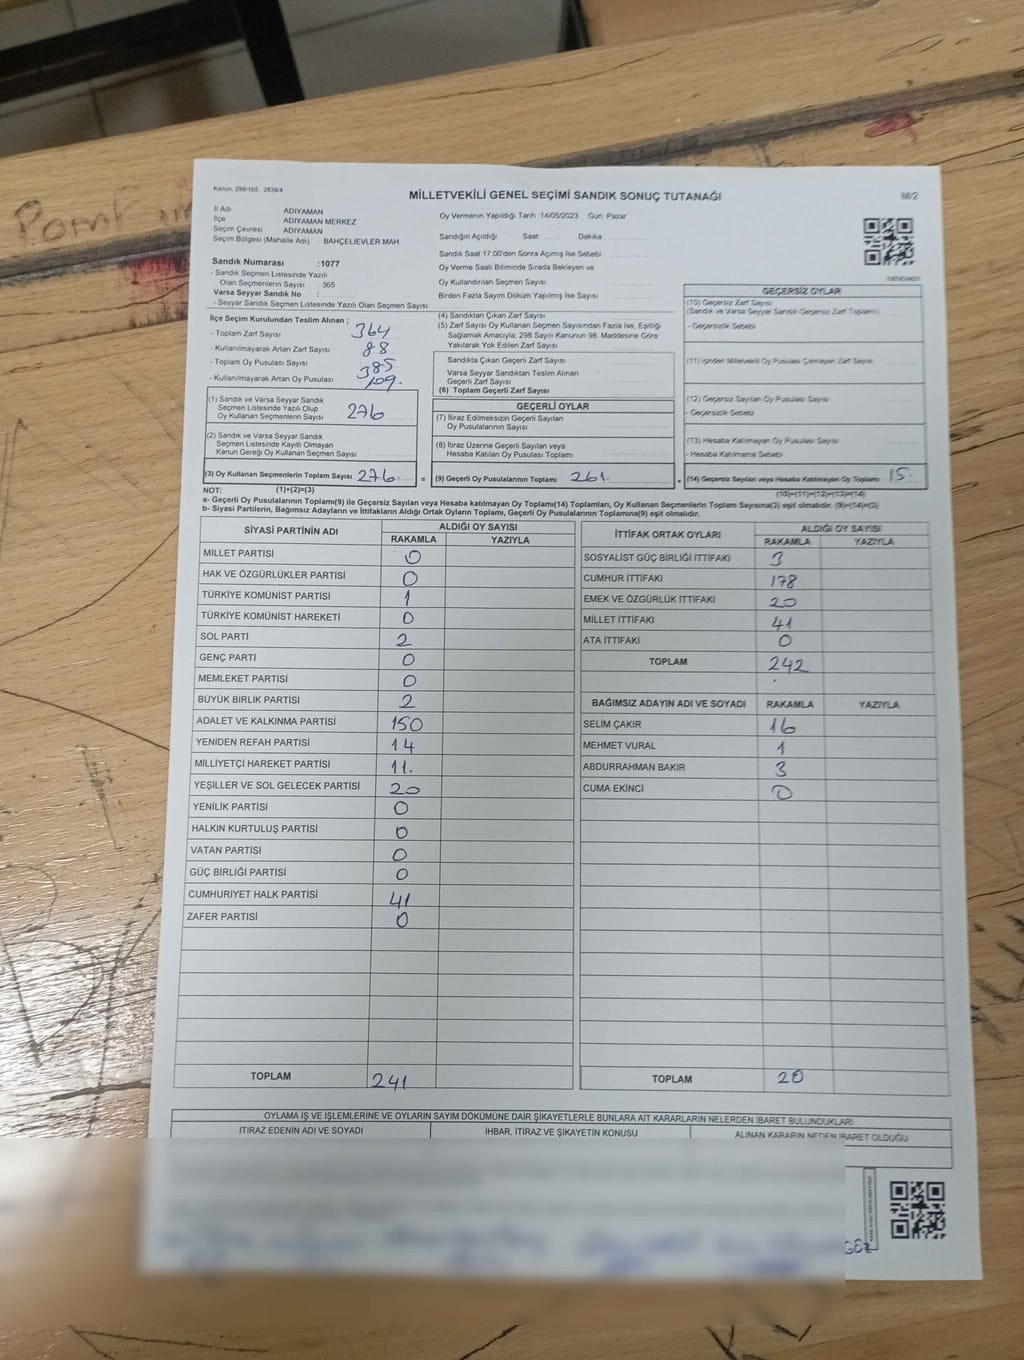 Kanun: 298/105 2839/4
MİLLETVEKİLİ GENEL SEÇİMİ SANDIK SONUÇ TUTANAĞI
İl Adı ADIYAMAN
İlçe ADIYAMAN MERKEZ
Seçim Çevresi ADIYAMAN
Seçim Bölgesi (Mahalle Adı) BAHÇELİEVLER MAH
Sandık Numarası :1077
- Sandık Seçmen Listesinde Yazılı
Olan Seçmenlerin Sayısı : 365
Varsa Seyyar Sandık No :
- Seyyar Sandık Seçmen Listesinde Yazılı Olan Seçmen Sayısı
Oy Vermenin Yapıldığı Tarih :14/05/2023 Gün: Pazar
Sandığın Açıldığı Saat Dakika
Sandık Saat 17.00'den Sonra Açılmış İse Sebebi
Oy Verme Saati Bitiminde Sırada Bekleyen ve
Oy Kullandırılan Seçmen Sayısı
Birden Fazla Sayım Döküm Yapılmış İse Sayısı
İlçe Seçim Kurulundan Teslim Alınan ;
- Toplam Zarf Sayısı 364
- Kullanılmayarak Artan Zarf Sayısı 88
- Toplam Oy Pusulası Sayısı 385
- Kullanılmayarak Artan Oy Pusulası 109.
(1) Sandık ve Varsa Seyyar Sandık
Seçmen Listesinde Yazılı Olup
Oy Kullanan Seçmenlerin Sayısı 276
(2) Sandık ve Varsa Seyyar Sandık
Seçmen Listesinde Kayıtlı Olmayan
Kanun Gereği Oy Kullanan Seçmen Sayısı
(3) Oy Kullanan Seçmenlerin Toplam Sayısı 276.
(1)+(2)=(3)
(4) Sandıktan Çıkan Zarf Sayısı
(5) Zarf Sayısı Oy Kullanan Seçmen Sayısından Fazla İse, Eşitliği
Sağlamak Amacıyla, 298 Sayılı Kanunun 98. Maddesine Göre
Yakılarak Yok Edilen Zarf Sayısı
Sandıkta Çıkan Geçerli Zarf Sayısı
Varsa Seyyar Sandıktan Teslim Alınan
Geçerli Zarf Sayısı
(6) Toplam Geçerli Zarf Sayısı
GEÇERLİ OYLAR
(7) İtiraz Edilmeksizin Geçerli Sayılan
Oy Pusulalarının Sayısı
(8) İtiraz Üzerine Geçerli Sayılan veya
Hesaba Katılan Oy Pusulası Toplamı
= (9) Geçerli Oy Pusulalarının Toplamı 261.
GEÇERSİZ OYLAR
(10) Geçersiz Zarf Sayısı
(Sandık ve Varsa Seyyar Sandık Geçersiz Zarf Toplamı)
- Geçersizlik Sebebi
(11) İçinden Milletvekili Oy Pusulası Çıkmayan Zarf Sayısı
(12) Geçersiz Sayılan Oy Pusulası Sayısı
- Geçersizlik Sebebi
(13) Hesaba Katılmayan Oy Pusulası Sayısı
- Hesaba Katılmama Sebebi
+ (14) Geçersiz Sayılan veya Hesaba Katılmayan Oy Toplamı 15.
(10)+(11)+(12)+(13)=(14)
NOT:
a- Geçerli Oy Pusulalarının Toplamı(9) ile Geçersiz Sayılan veya Hesaba katılmayan Oy Toplamı(14) Toplamları, Oy Kullanan Seçmenlerin Toplam Sayısına(3) eşit olmalıdır. (9)+(14)=(3)
b- Siyasi Partilerin, Bağımsız Adayların ve İttifakların Aldığı Ortak Oyların Toplamı, Geçerli Oy Pusulalarının Toplamına(9) eşit olmalıdır.
SİYASİ PARTİNİN ADI ALDIĞI OY SAYISI
RAKAMLA YAZIYLA
MİLLET PARTİSİ 0
HAK VE ÖZGÜRLÜKLER PARTİSİ 0
TÜRKİYE KOMÜNİST PARTİSİ 1
TÜRKİYE KOMÜNİST HAREKETİ 0
SOL PARTİ 2
GENÇ PARTİ 0
MEMLEKET PARTİSİ 0
BÜYÜK BİRLİK PARTİSİ 2
ADALET VE KALKINMA PARTİSİ 150
YENİDEN REFAH PARTİSİ 14
MİLLİYETÇİ HAREKET PARTİSİ 11.
YEŞİLLER VE SOL GELECEK PARTİSİ 20
YENİLİK PARTİSİ 0
HALKIN KURTULUŞ PARTİSİ 0
VATAN PARTİSİ 0
GÜÇ BİRLİĞİ PARTİSİ 0
CUMHURİYET HALK PARTİSİ 41
ZAFER PARTİSİ 0
TOPLAM 241
İTTİFAK ORTAK OYLARI ALDIĞI OY SAYISI
RAKAMLA YAZIYLA
SOSYALİST GÜÇ BİRLİĞİ İTTİFAKI 3
CUMHUR İTTİFAKI 178
EMEK VE ÖZGÜRLÜK İTTİFAKI 20
MİLLET İTTİFAKI 41
ATA İTTİFAKI 0
TOPLAM 242
BAĞIMSIZ ADAYIN ADI VE SOYADI RAKAMLA YAZIYLA
SELİM ÇAKIR 16
MEHMET VURAL 1
ABDURRAHMAN BAKIR 3
CUMA EKİNCİ 0
TOPLAM 20
OYLAMA İŞ VE İŞLEMLERİNE VE OYLARIN SAYIM DÖKÜMÜNE DAİR ŞİKAYETLERLE BUNLARA AİT KARARLARIN NELERDEN İBARET BULUNDUKLARI
İTİRAZ EDENİN ADI VE SOYADI İHBAR, İTİRAZ VE ŞİKAYETİN KONUSU ALINAN KARARIN NEDEN İBARET OLDUĞU